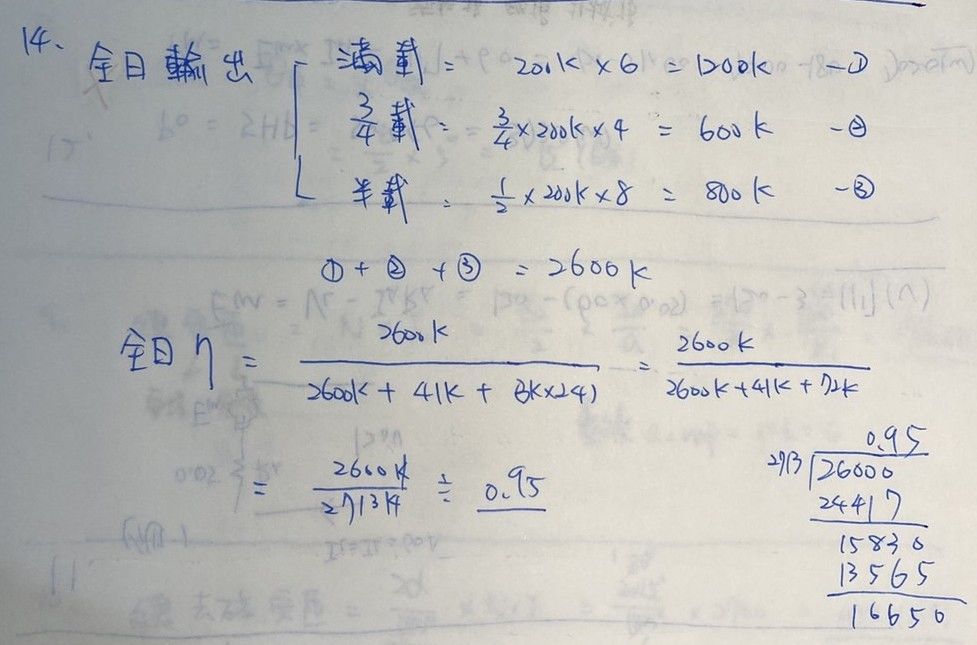 14. 全日輸出 滿載 = 200k × 6 = 1200k —①
3/4 載 = 3/4 × 200k × 4 = 600k —②
半載 = 1/2 × 200k × 8 = 800k —③
① + ② + ③ = 2600k
全日 η = 2600k / (2600k + 41k + (3k×24)) = 2600k / (2600k + 41k + 72k)
= 2600k / 2713k ≑ 0.95
0.95
2713 26000
24417
15830
13565
16650